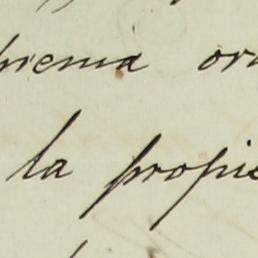 premia or
la propie